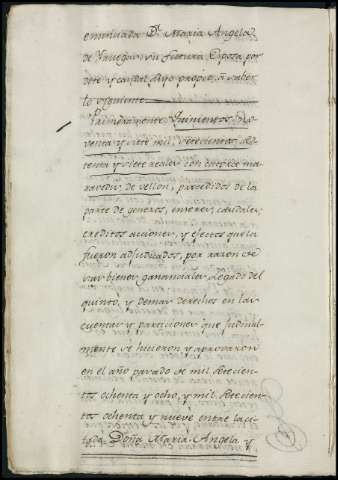 enunciada D.ª Maria Angela
de Yanegas su futura Esposa por
dote y caudal suyo propio, á saber
lo siguiente
Primeramente Quinientos No-
venta y siete mil setecientos se-
tenta y siete reales con catorce ma-
ravedis de vellon, procedidos de la
parte de generos, enseres, caudales,
creditos acciones, y efectos que la
fueron adjudicados, por razon de
sus bienes gananciales, legado del
quinto, y demas derechos en las
cuentas y particiones que judicial-
mente se hicieron y aprovaron
en el año pasado de mil setecien-
tos ochenta y ocho, y mil setecien-
tos ochenta y nueve entre la ci-
tada Doña Maria Angela y